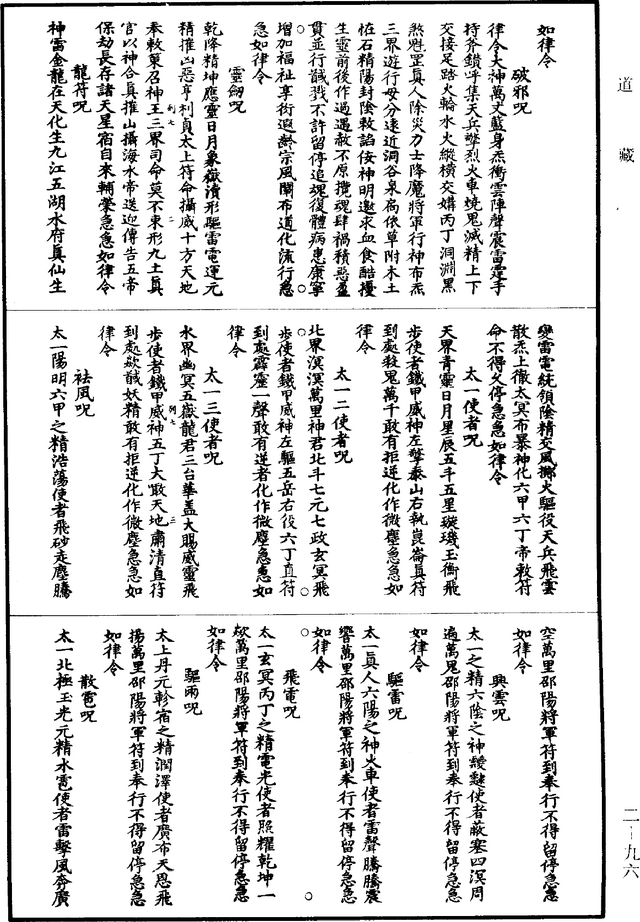 道藏
如律令
破邪呪
律令大神萬丈藍身炁衝雲陣聲震雷霆手
持斧鑕呼集天兵擊烈火車燒鬼滅精上下
交接足踏火輪水火縱橫交媾丙丁洞淵黑
煞魁罡真人除災力士降魔將軍行神布炁
三界遊行毋分遠近洞谷泉扃依草附木土
恠石精陽封陰敕諂佞神明邀求血食酷擾
生靈前後作過遇赦不原攬魂肆禍積惡盈
貫並行誠戮不許留停追魂復體病患康寧
增加福祉享術遐齡宗風闡布道化流行急
急如律令
靈劒呪
乾降精坤應靈日月象嶽瀆形驅雷電運元
精推山惡亨利貞太上符命攝威十方天地
奉敕策召神王三界司命莫不束形九土真
官以神合真推山攝海水帝送迎傳告五帝
保劫長存諸天星宿自來輔榮急急如律令
龍符呪
神雷金龍在天化生九江五湖水府真仙生
變雷電統領陰精交風擲火驅役天兵飛雲
散炁上徹太冥布暴神化六甲六丁帝敕符
命不得久停急急如律令
太一使者呪
天界青靈日月星辰五斗五星璇璣玉衡飛
步使者鐵甲威神左擎泰山右執崑崙真符
到處殺鬼萬千敢有拒逆化作微塵急急如
律令
太一二使者呪
北界溟溟萬里神君北斗七元七政玄冥飛
步使者鐵甲威神左驅五岳右役六丁直符
到處霹靂一聲敢有逆者化作微塵急急如
律令
太一三使者呪
水界幽冥五嶽龍君三台華蓋大賜威靈飛
步使者鐵甲威神五丁大戰天地肅清直符
到處歘馘妖精敢有拒逆化作微塵急急如
律令
袪風呪
太一陽明六甲之精浩蕩使者飛砂走塵騰
空萬里邵陽將軍符到奉行不得留停急急
如律令
興雲呪
太一之精六陰之神靉靆使者蔽塞四溟周
遍萬鬼邵陽將軍符到奉行不得留停急急
如律令
驅雷呪
太一真人六陽之神火車使者雷聲騰騰震
響萬里邵陽將軍符到奉行不得留停急急
如律令
飛電呪
太一玄冥丙丁之精電光使者照耀乾坤一
歘萬里邵陽將軍符到奉行不得留停急急
如律令
驅雨呪
太上丹元軫宿之精潤澤使者廣布天恩飛
揚萬里邵陽將軍符到奉行不得留停急急
如律令
散雹呪
太一北極玉光元精水雹使者雷擊風奔廣
二-九六